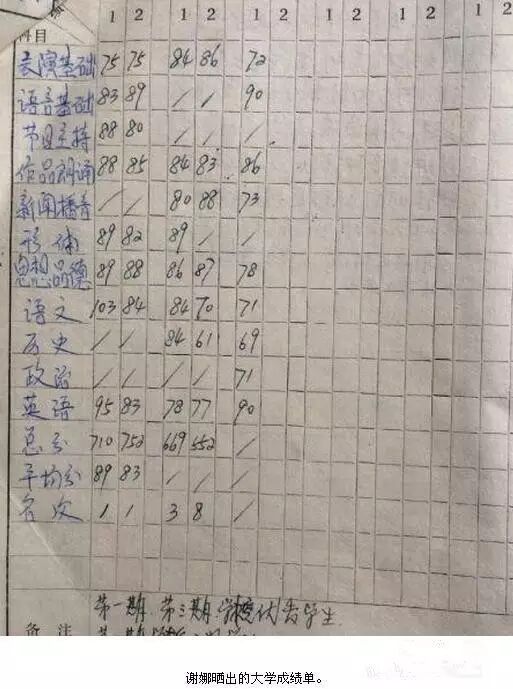 科目 1 2 1 2 1 2 1 2 1 2 1 2
表演基础 75 75 84 86 72
语言基础 83 89 / / 90
节目主持 88 80 / / /
作品朗诵 88 85 84 83 86
新闻播音 / / 80 88 73
形体 89 82 89 / /
思想品德 89 88 86 87 78
语文 103 84 84 70 71
历史 / / 84 61 69
政治 / / / / 71
英语 95 83 78 77 90
总分 710 752 669 552 /
平均分 89 83 / / /
名次 1 1 3 8 /
第一期 第三期 学生
备注
谢娜晒出的大学成绩单。